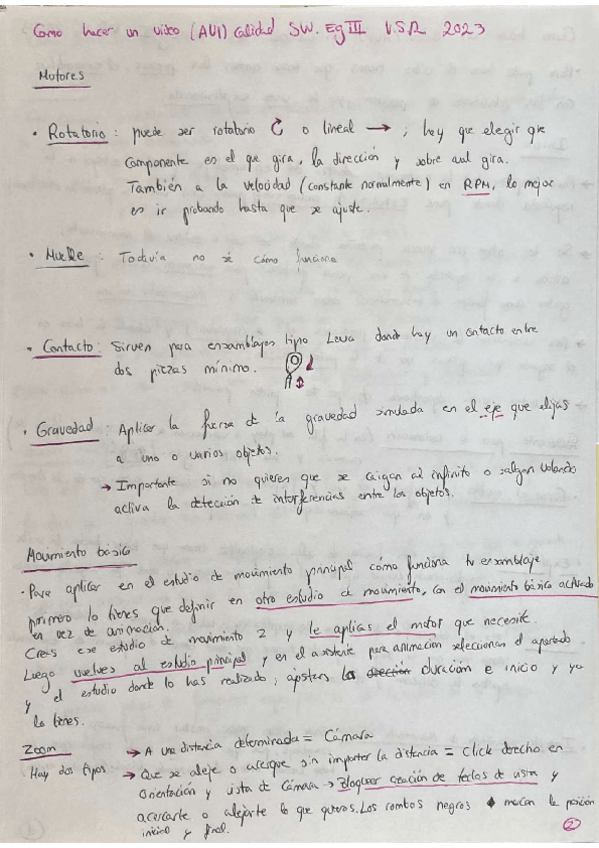 Como hacer un video (AVI) Calidad SW. Eg III V.S.R 2023
Motores
• Rotatorio : puede ser rotatorio o lineal → ; hay que elegir que
componente es el que gira, la dirección y sobre cual gira.
También a la velocidad (constante normalmente) en RPM, lo mejor
es ir probando hasta que se ajuste.
• Muelle : Todavía no sé cómo funciona
• Contacto : Sirven para ensamblajes tipo Leva donde hay un contacto entre
dos piezas mínimo.
• Gravedad : Aplicar la fuerza de la gravedad simulada en el eje que elijas
a uno o varios objetos.
→ Importante si no quieres que se caigan al infinito o salgan volando
activa la detección de interferencias entre los objetos.
Movimiento básico
• Para aplicar en el estudio de movimiento principal cómo funciona tu ensamblaje
primero lo tienes que definir en otro estudio de movimiento, con el movimiento básico activado
en vez de animación.
Creas ese estudio de movimiento 2 y le aplicas el motor que necesite.
Luego vuelves al estudio principal y en el asistente para animación seleccionas el apartado
y el estudio donde lo has realizado, ajustas la duración e inicio y ya
lo tienes.
Zoom → A una distancia determinada = Cámara
Hay dos tipos → Que se aleje o acerque sin importar la distancia = Click derecho en
Orientación y vista de Cámara → Bloquear creación de teclas de vista y
acercarte o alejarte lo que quieras. Los rombos negros ♦ marcan la posición
inicial y final.
2